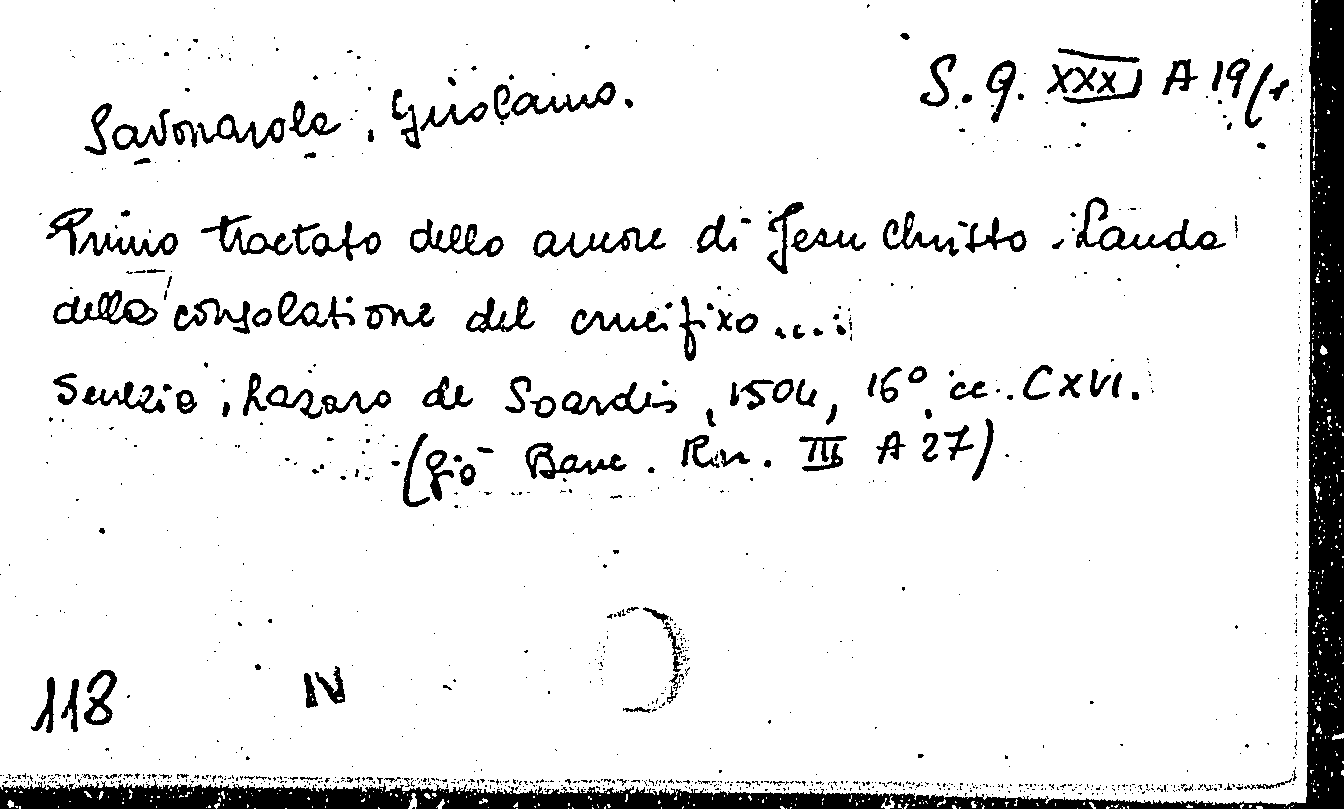 Savonarola, Girolamo.
S. Q. XXXI A 19/1
Primo tractato dello amore di Jesu Christo. Lauda
della consolatione del crucifixo....
Lazaro de Soardis, 1504, 16° cc. CXVI.
(già Banc. Rar. III A 27)
118 IV